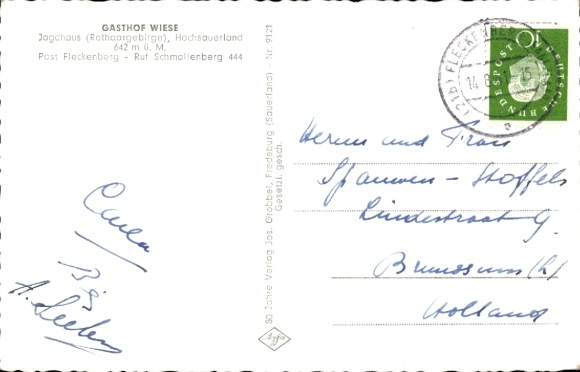 GASTHOF WIESE
Jagdhaus (Rothaargebirge), Hochsauerland
642 m ü. M.
Post Fleckenberg - Ruf Schmallenberg 444
80 Jahre Verlag Jos. Grobbel, Fredeburg (Sauerland) - Nr. 9121
Gesetzl. gesch.
(21b) FLECKENBERG
14.8.
a
10
DEUTSCHE
BUNDESPOST
Herrn und Frau
Spauwen - Stoffels
Lindestraat 9.
Brunssum (L)
Holland
Carla
A.